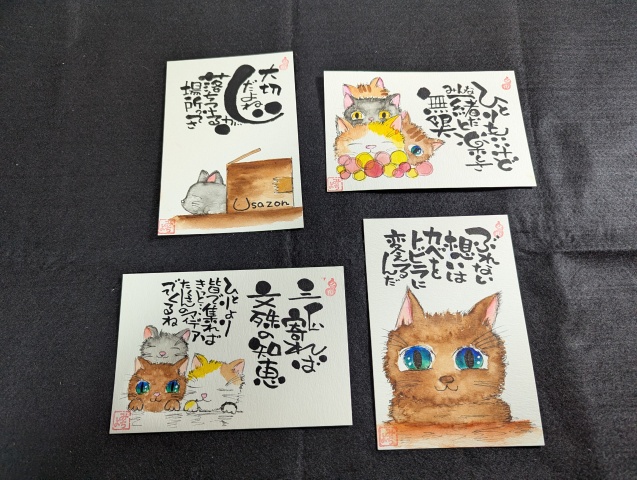 大切
だよね
心が
落ちつける
場所って
Usazon
ひとりもいいけど
みんな
一緒だと楽しさ
無限大
三人寄れば
文殊の知恵
ひとりより
皆で集れば
きっとアイデア
でてくるね
ぶれない
想いは
カベを
トビラに
変える
んだ